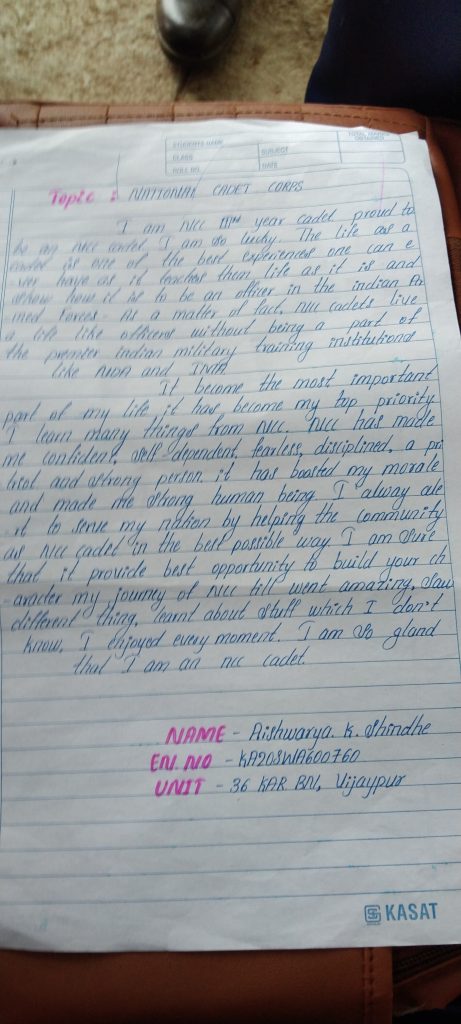 STUDENTS NAME
CLASS
SUBJECT
ROLL NO.
DATE
TOTAL MARKS
OBTAINED
Topic : NATIONAL CADET CORPS
I am NCC IIIrd year cadet proud to
be an NCC cadet. I am so lucky. The life as a
cadet is one of the best experiences one can e
ver have as it teaches them life as it is and
show how it is to be an officer in the indian Ar
med Forces. As a matter of fact, NCC cadets live
a life like officers without being a part of
the premier indian military training institutions
like NDA and INA.
It become the most important
part of my life it has become my top priority
I learn many things from NCC. NCC has made
me confident, self dependent, fearless, disciplined, a pu
and strong person. it has boosted my morale
and made me strong human being I alway ale
rt to serve my nation by helping the community
as NCC cadet in the best possible way I am sure
that it provide best opportunity to build your ch
aracter my journey of NCC till went amazing, Saw
different thing, learnt about stuff which I don't
know, I enjoyed every moment. I am so gland
that I am an ncc cadet.
NAME - Aishwarya. K. Shindhe
EN. NO - KA20SWA600760
UNIT - 36 KAR BN, Vijaypur
KASAT